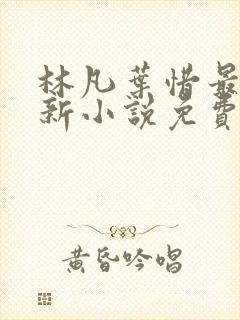 林凡葉惜最
新小說免費
黃昏吟唱